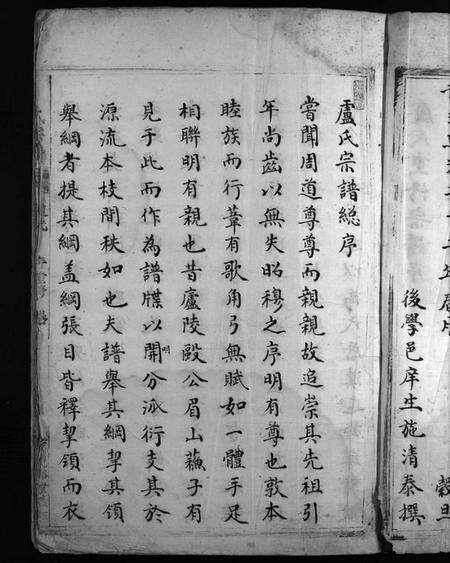 穀旦
後學邑庠生施清泰撰
盧氏宗譜總序
嘗聞周道尊尊而親親故追崇其先祖引
年尚齒以無失昭穆之序明有尊也敦本
睦族而行葦有歌角弓無賦如一體手足
相聯明有親也昔廬陵歐公眉山蘓子有
見于此而作為譜牒以開明分派衍支其於
源流本枝間秩如也夫譜舉其綱挈其領
舉綱者提其綱盖綱張目皆釋挈領而衣